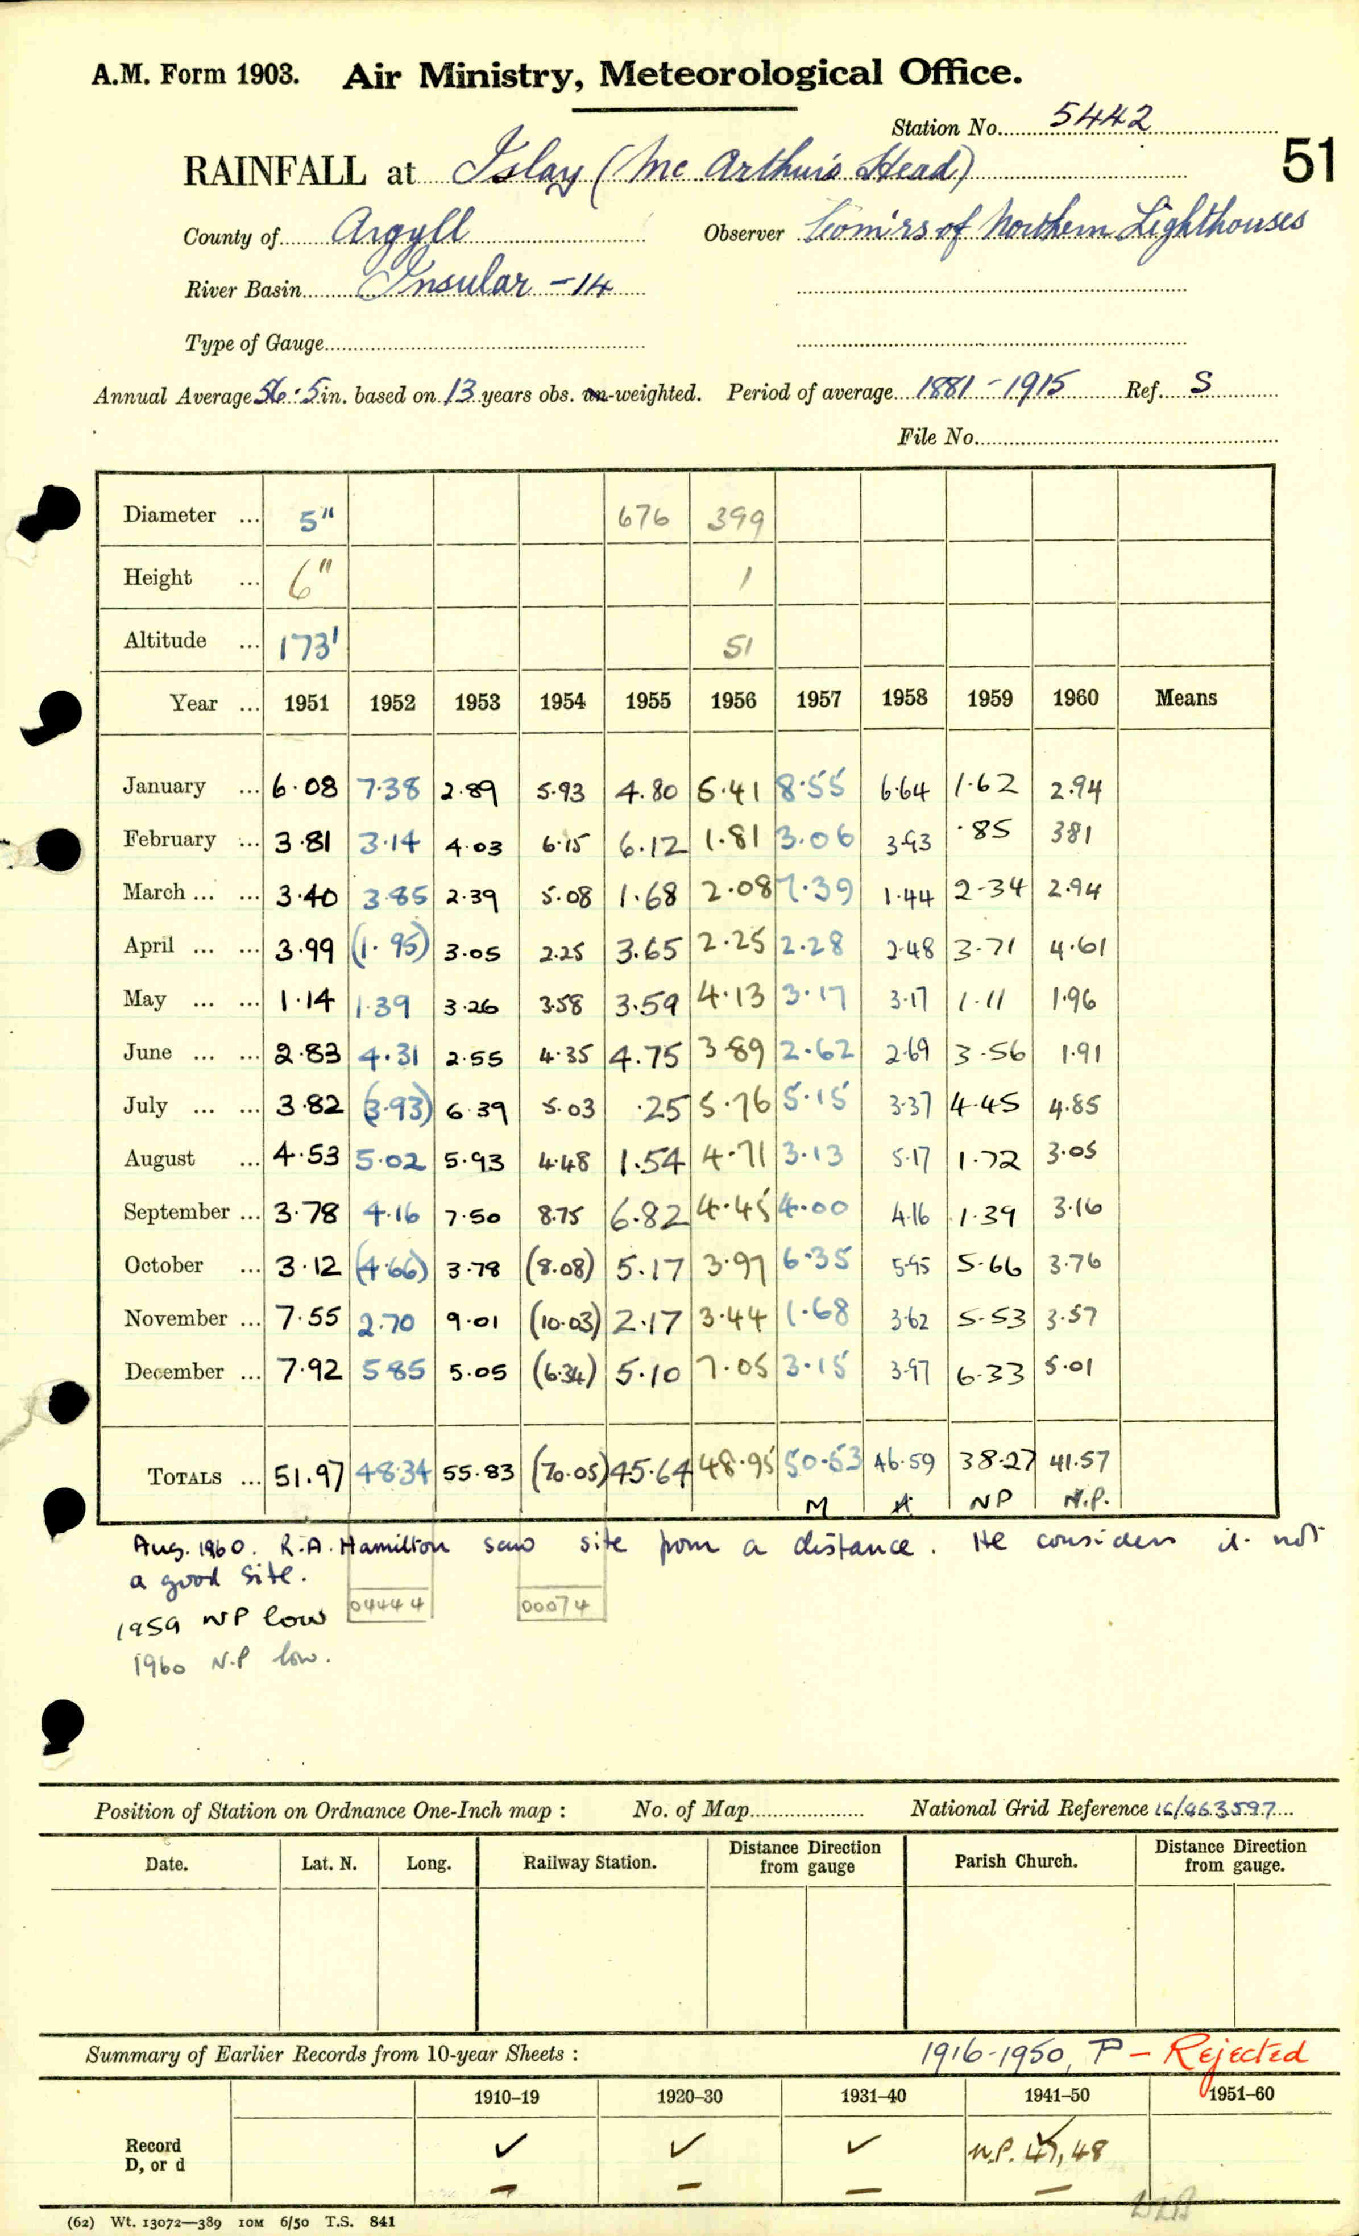 A.M. Form 1903. Air Ministry, Meteorological Office.
Station No. 5442
51
RAINFALL at Islay (Mc Arthur's Head)
County of Argyll Observer Com'rs of Northern Lighthouses
River Basin Insular - 14
Type of Gauge
Annual Average 56.5 in. based on 13 years obs. un-weighted. Period of average 1881-1915 Ref. S
File No.
Diameter ... 5" 676 399
Height ... 6" 1
Altitude ... 173' 51
Year ... 1951 1952 1953 1954 1955 1956 1957 1958 1959 1960 Means
January ... 6.08 7.38 2.89 5.93 4.80 5.41 8.55 6.64 1.62 2.94
February ... 3.81 3.14 4.03 6.15 6.12 1.81 3.06 3.93 .85 3.81
March ... ... 3.40 3.85 2.39 5.08 1.68 2.08 7.39 1.44 2.34 2.94
April ... ... 3.99 (1.95) 3.05 2.25 3.65 2.25 2.28 2.48 3.71 4.61
May ... ... 1.14 1.39 3.26 3.58 3.59 4.13 3.17 3.17 1.11 1.96
June ... ... 2.83 4.31 2.55 4.35 4.75 3.89 2.62 2.69 3.56 1.91
July ... ... 3.82 (3.93) 6.39 5.03 .25 5.76 5.15 3.37 4.45 4.85
August ... 4.53 5.02 5.93 4.48 1.54 4.71 3.13 5.17 1.72 3.05
September ... 3.78 4.16 7.50 8.75 6.82 4.45 4.00 4.16 1.39 3.16
October ... 3.12 (4.66) 3.78 (8.08) 5.17 3.97 6.35 5.95 5.66 3.76
November ... 7.55 2.70 9.01 (10.03) 2.17 3.44 1.68 3.62 5.53 3.57
December ... 7.92 5.85 5.05 (6.34) 5.10 7.05 3.15 3.97 6.33 5.01
TOTALS ... 51.97 48.34 55.83 (70.05) 45.64 48.95 50.53 46.59 38.27 41.57
M A NP N.P.
Aug. 1960. R.A. Hamilton saw site from a distance. He considers it not
a good site.
04444 00074
1959 NP low
1960 N.P low.
Position of Station on Ordnance One-Inch map : No. of Map National Grid Reference 16/463597
Date. Lat. N. Long. Railway Station. Distance from gauge Direction Parish Church. Distance from gauge. Direction
Summary of Earlier Records from 10-year Sheets : 1916-1950, P - Rejected
1910–19 1920–30 1931–40 1941–50 1951–60
Record ✓ ✓ ✓ N.P. 47, 48 ✓
D, or d – – – –
(62) Wt. 13072—389 10M 6/50 T.S. 841